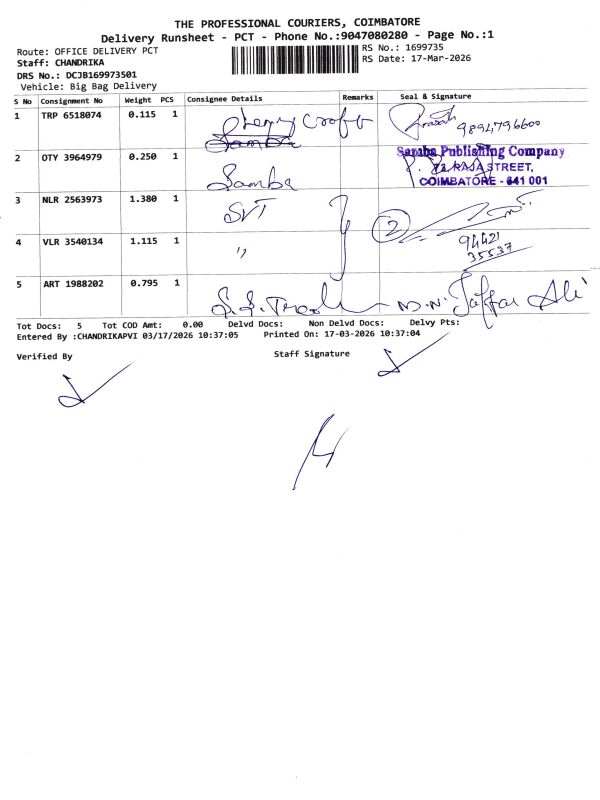 THE PROFESSIONAL COURIERS, COIMBATORE
Delivery Runsheet - PCT - Phone No.:9047080280 - Page No.:1
Route: OFFICE DELIVERY PCT
RS No.: 1699735
Staff: CHANDRIKA
RS Date: 17-Mar-2026
DRS No.: DCJB169973501
Vehicle: Big Bag Delivery
S No Consignment No Weight PCS Consignee Details Remarks Seal & Signature
1 TRP 6518074 0.115 1 9894796600
Samba
2 OTY 3964979 0.250 1 Samba
Samba Publishing Company
73, RAJA STREET,
COIMBATORE - 641 001
3 NLR 2563973 1.380 1 SVT 2
4 VLR 3540134 1.115 1 " 94421
35537
5 ART 1988202 0.795 1 Jaffar Ali
Tot Docs: 5 Tot COD Amt: 0.00 Delvd Docs: Non Delvd Docs: Delvy Pts:
Entered By :CHANDRIKAPVI 03/17/2026 10:37:05 Printed On: 17-03-2026 10:37:04
Verified By Staff Signature